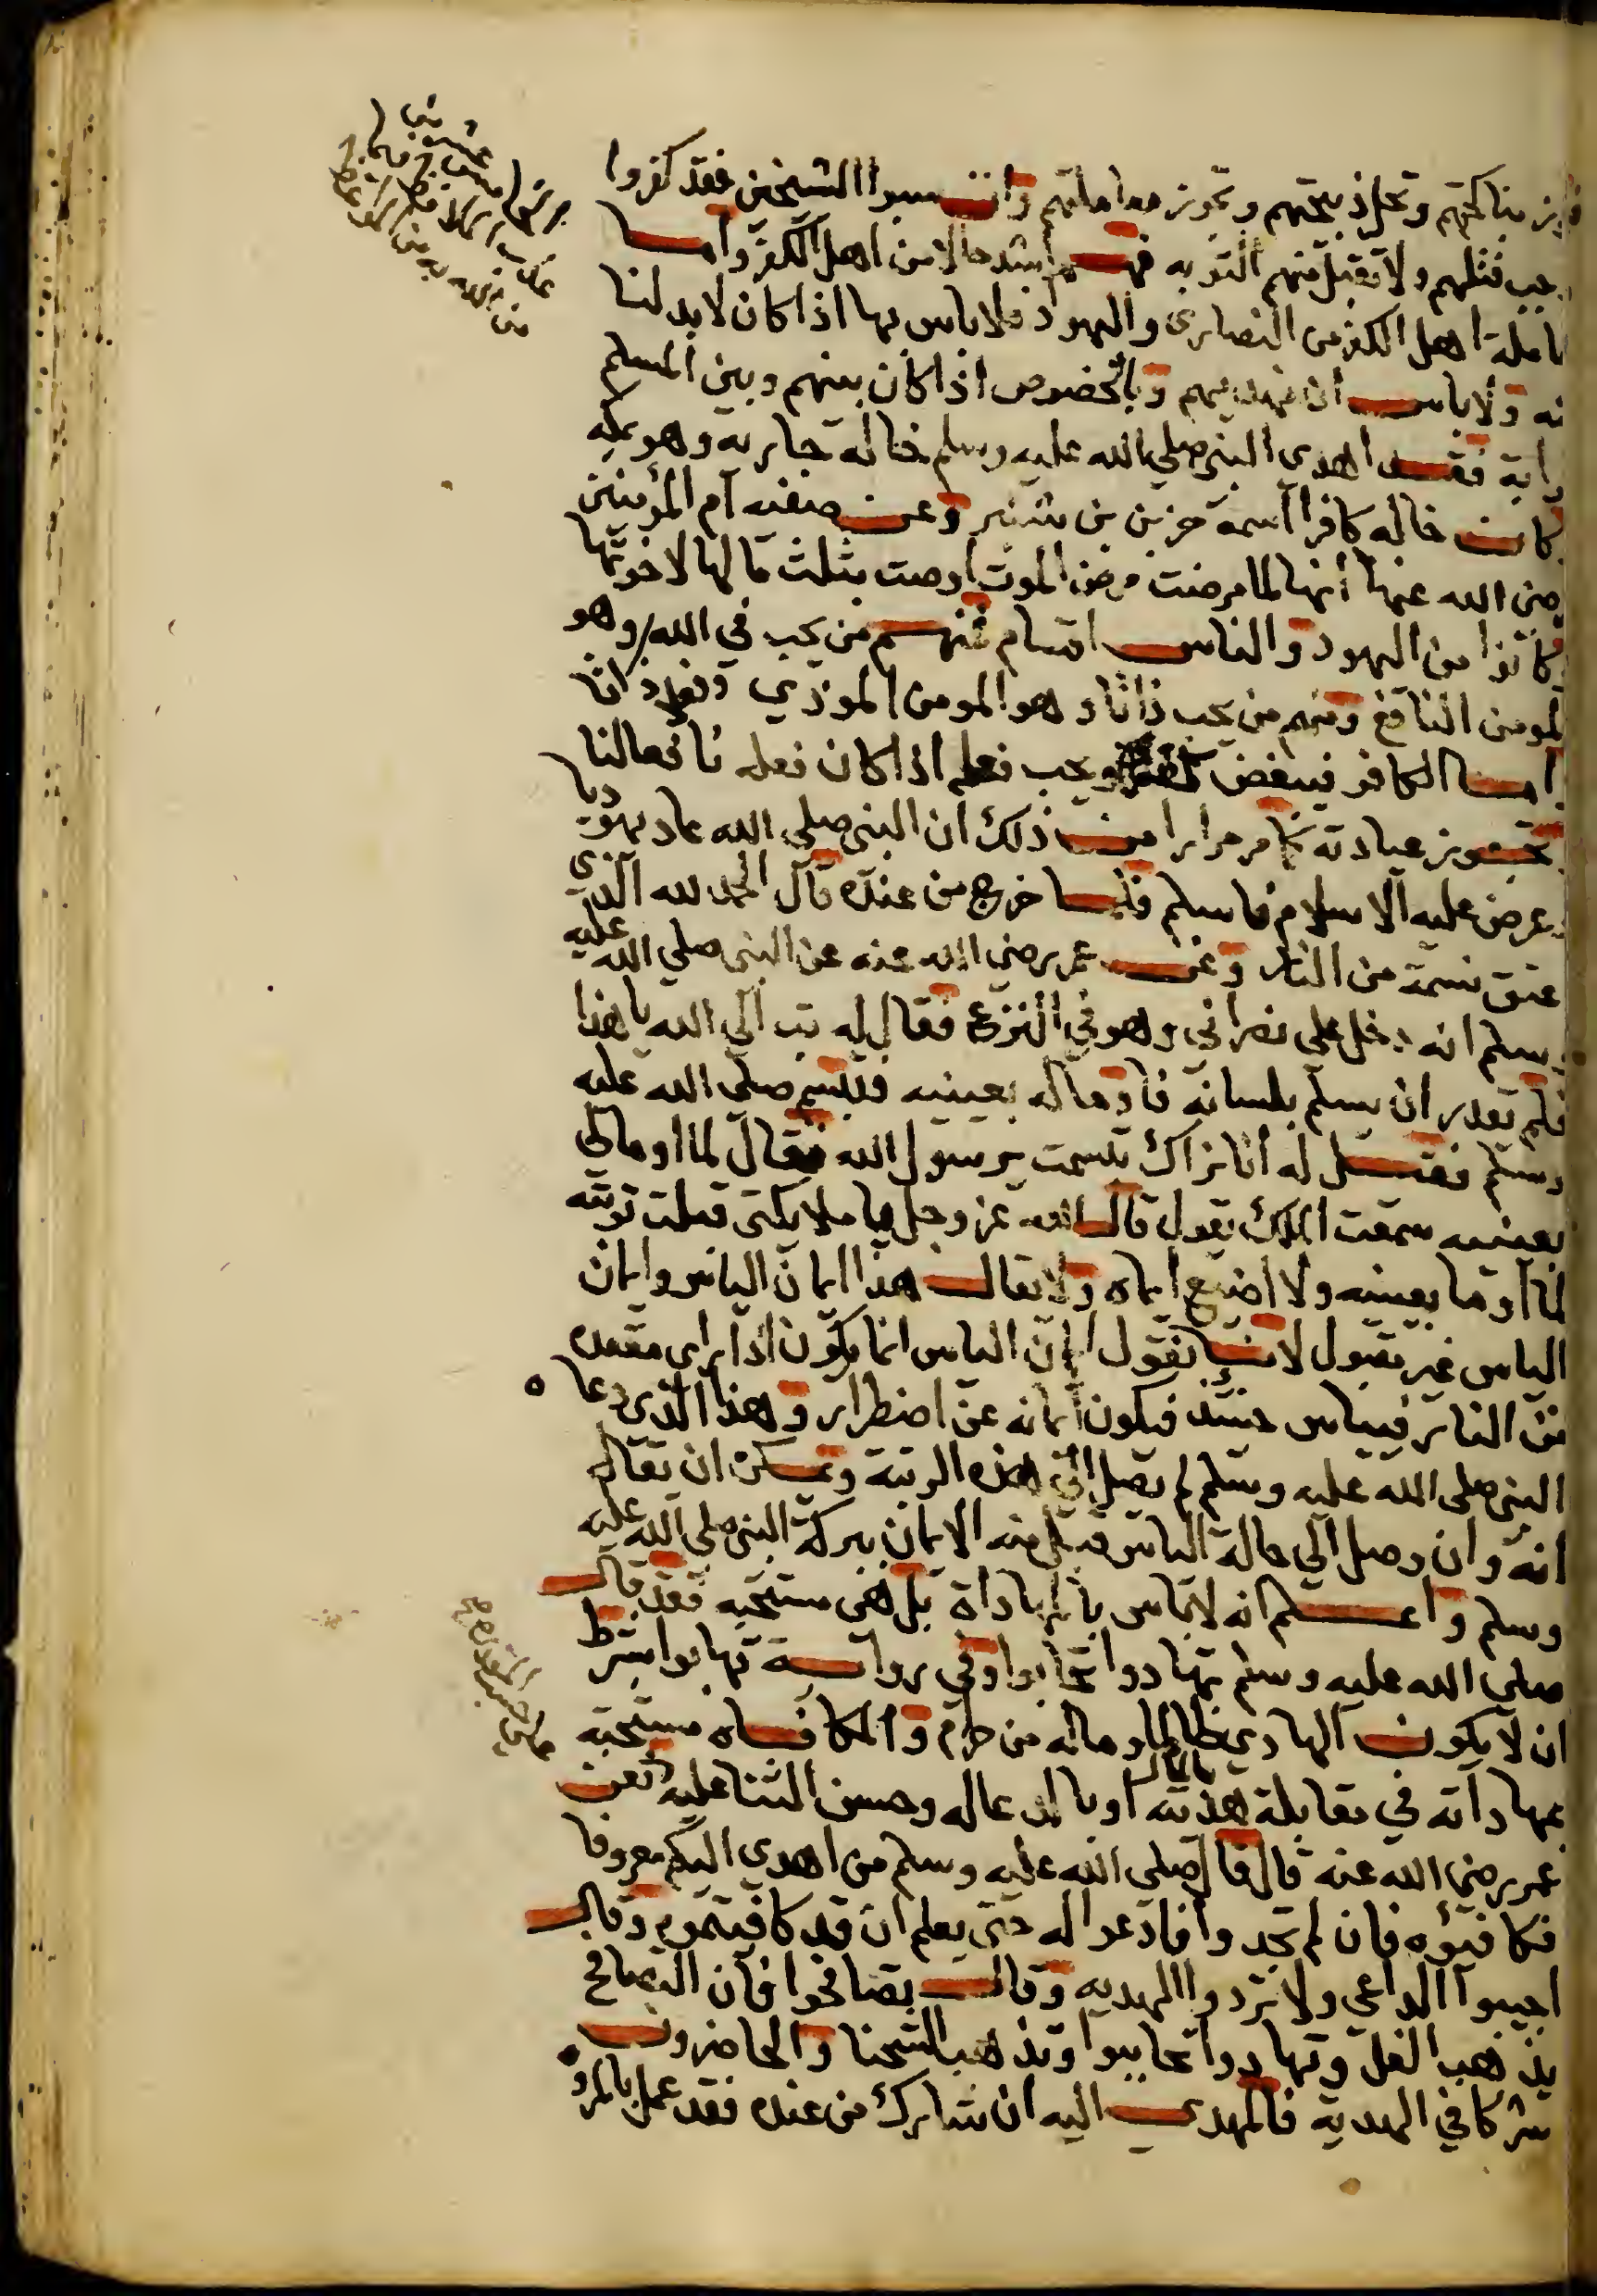 مناكحتهم وتحل ذبيحتهم وتجوز معاملتهم وان سبوا الشيخين فقد كفروا
قتلهم ولا تقبل منهم التوبه فهم اشد حالا من اهل الكفر واما
اهل الكفر من النصارى واليهود فلا باس بها اذا كان لا بد لنا
ولا باس ان نهديهم وبالخصوص اذا كان بينهم وبين المسلم
فقد اهدى النبي صلى الله عليه وسلم خاله جاريه وهو بمكه
كان خاله كافرا اسمه حزين بن وعن صفيه ام المؤمنين
الله عنها انها لما مرضت مرض الموت اوصت بثلث مالها لاخوتها
كانوا من اليهود والناس اقسام فمنهم من يحب في الله وهو
المومن النافع ومنهم من يحب ذاتا وهو المومن الموذي
اما الكافر فيبغض ويحب فعله اذا كان فعله نافعا لنا
عيادته كما مر مرارا من ذلك ان النبي صلى الله عاد يهوديا
عرض عليه الاسلام فاسلم فلما خرج من عنده قال الحمد لله الذي
عتق نسمة من النار وعن عمر رضي الله عنه عن النبي صلى الله عليه
وسلم انه دخل على نصراني وهو في النزع فقال له تب الى الله يا هذا
فلم يقدر ان يسلم بلسانه فاوما له بعينيه فتبسم صلى الله عليه
وسلم فقيل له انا نراك تبسمت يرسول الله فقال لما اوما لي
بعينيه سمعت الملك يقول قال الله عز وجل يا ملايكتي قبلت توبته
لما اوما بعينيه ولا اضيع ايمانه ولا يقال هذا ايمان الياس وايمان
الياس غير مقبول لانا نقول ايمان الياس انما يكون اذا راى مقعده
من النار فييأس حينئذ فيكون ايمانه عن اضطرار وهذا الذي دعا
النبي صلى الله عليه وسلم لم يصل الى هذه الرتبة ويمكن ان يقال
انه وان وصل الى حالة الياس قبل منه الايمان ببركة النبي صلى الله عليه
وسلم واعلم انه لا باس بالمهاداة بل هي مستحبه فقد قال
صلى الله عليه وسلم تهادوا تحابوا وفي رواية تهابوا بشرط
ان لا يكون الهادي ظالما وماله من حرام والمكافاه مستحبه
بمهاداته في مقابلة هديته اوبالدعاله وحسن الثنا عليه فعن
عمر رضي الله عنه قال قال صلى الله عليه وسلم من اهدى اليكم معروفا
فكافيؤه فان لم تجدوا فادعوا له حتى يعلم ان قد كافيتموه وقال
اجيبوا الداعي ولا تردوا الهديه وقال تصافحوا فان التصافح
يذهب الغل وتهادوا تحاببوا وتذهب الشحنا والحاضرون
شركا في الهدية فالمهدى اليه ان شارك من عنده فقد عمل بالمرو